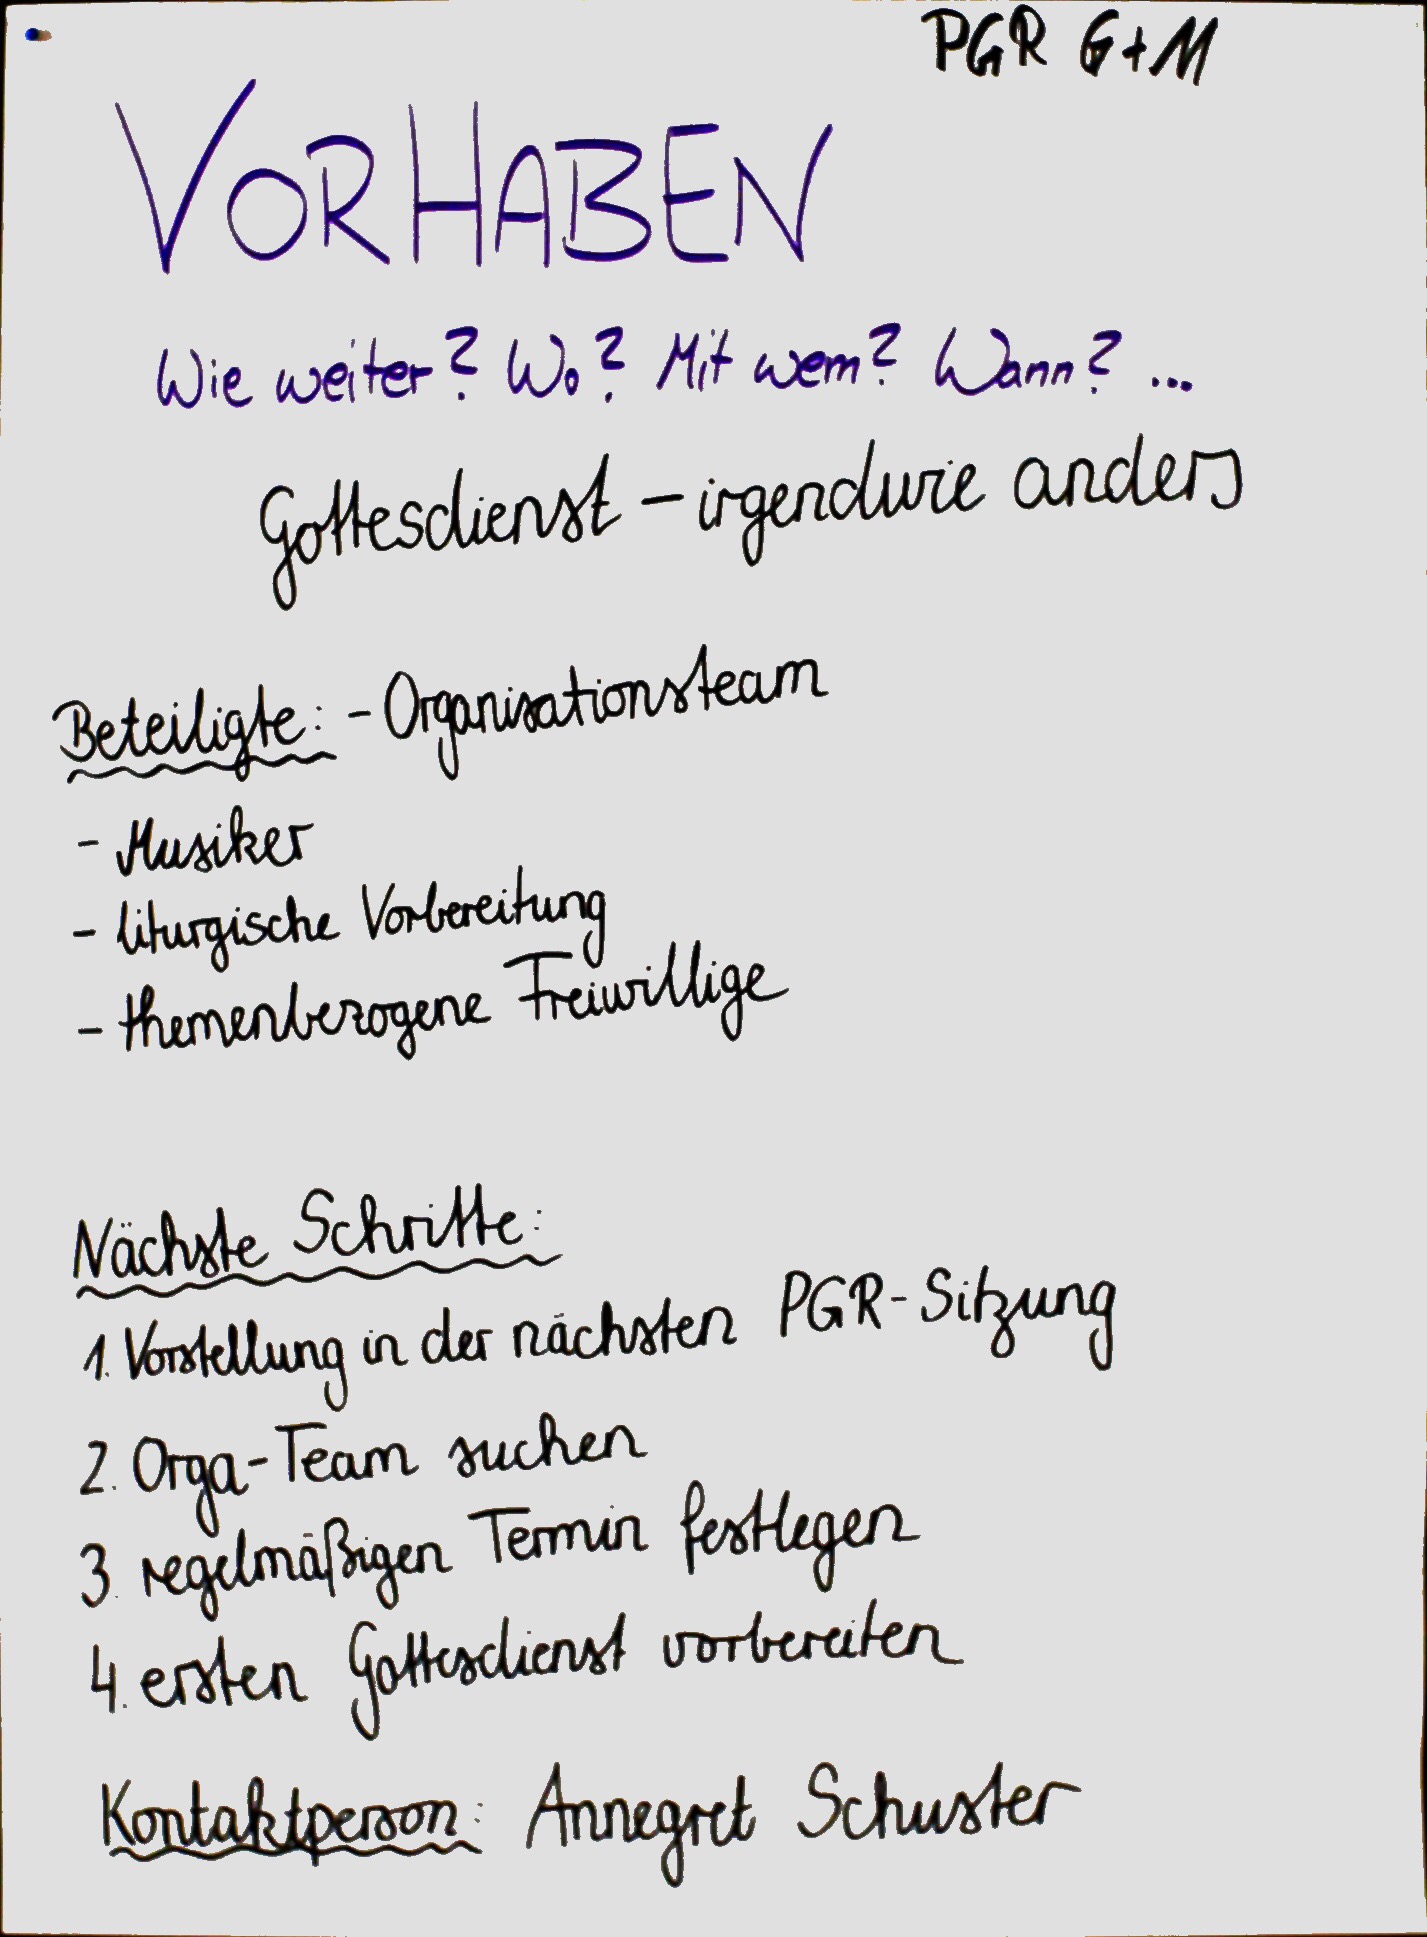 PGR G+M
VORHABEN
Wie weiter? Wo? Mit wem? Wann? ...
Gottesdienst – irgendwie anders
Beteiligte: - Organisationsteam
- Musiker
- liturgische Vorbereitung
- themenbezogene Freiwillige
Nächste Schritte:
1. Vorstellung in der nächsten PGR-Sitzung
2. Orga-Team suchen
3. regelmäßigen Termin festlegen
4. ersten Gottesdienst vorbereiten
Kontaktperson: Annegret Schuster